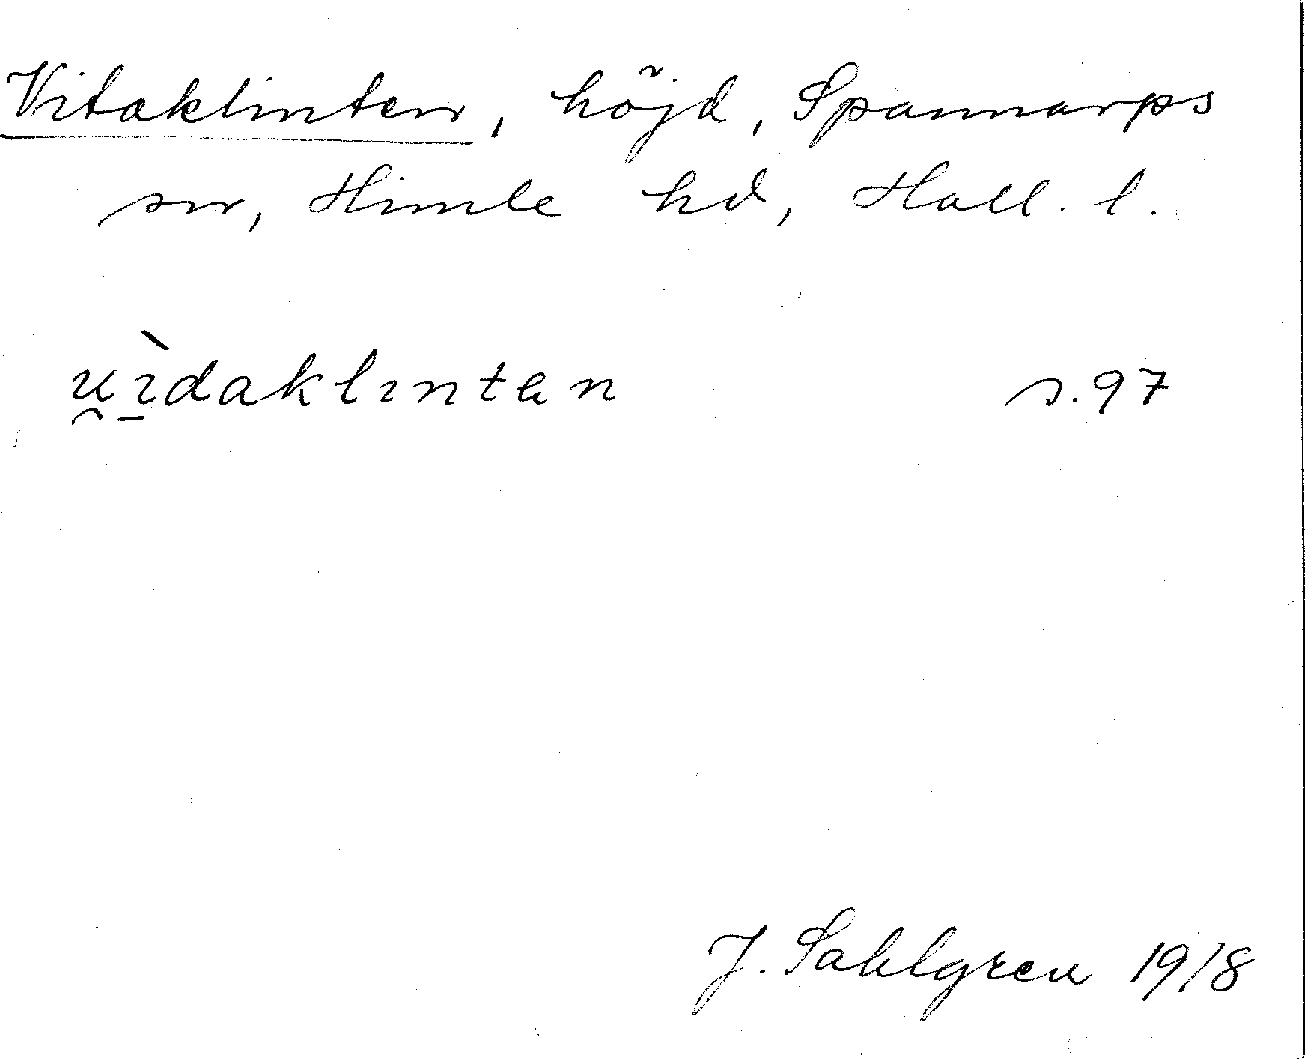 Vitaklinten, höjd, Spannarps
sn, Himle hd, Hall. l.
u̯ı̱̀daklıntən s.97
J. Sahlgren 1918